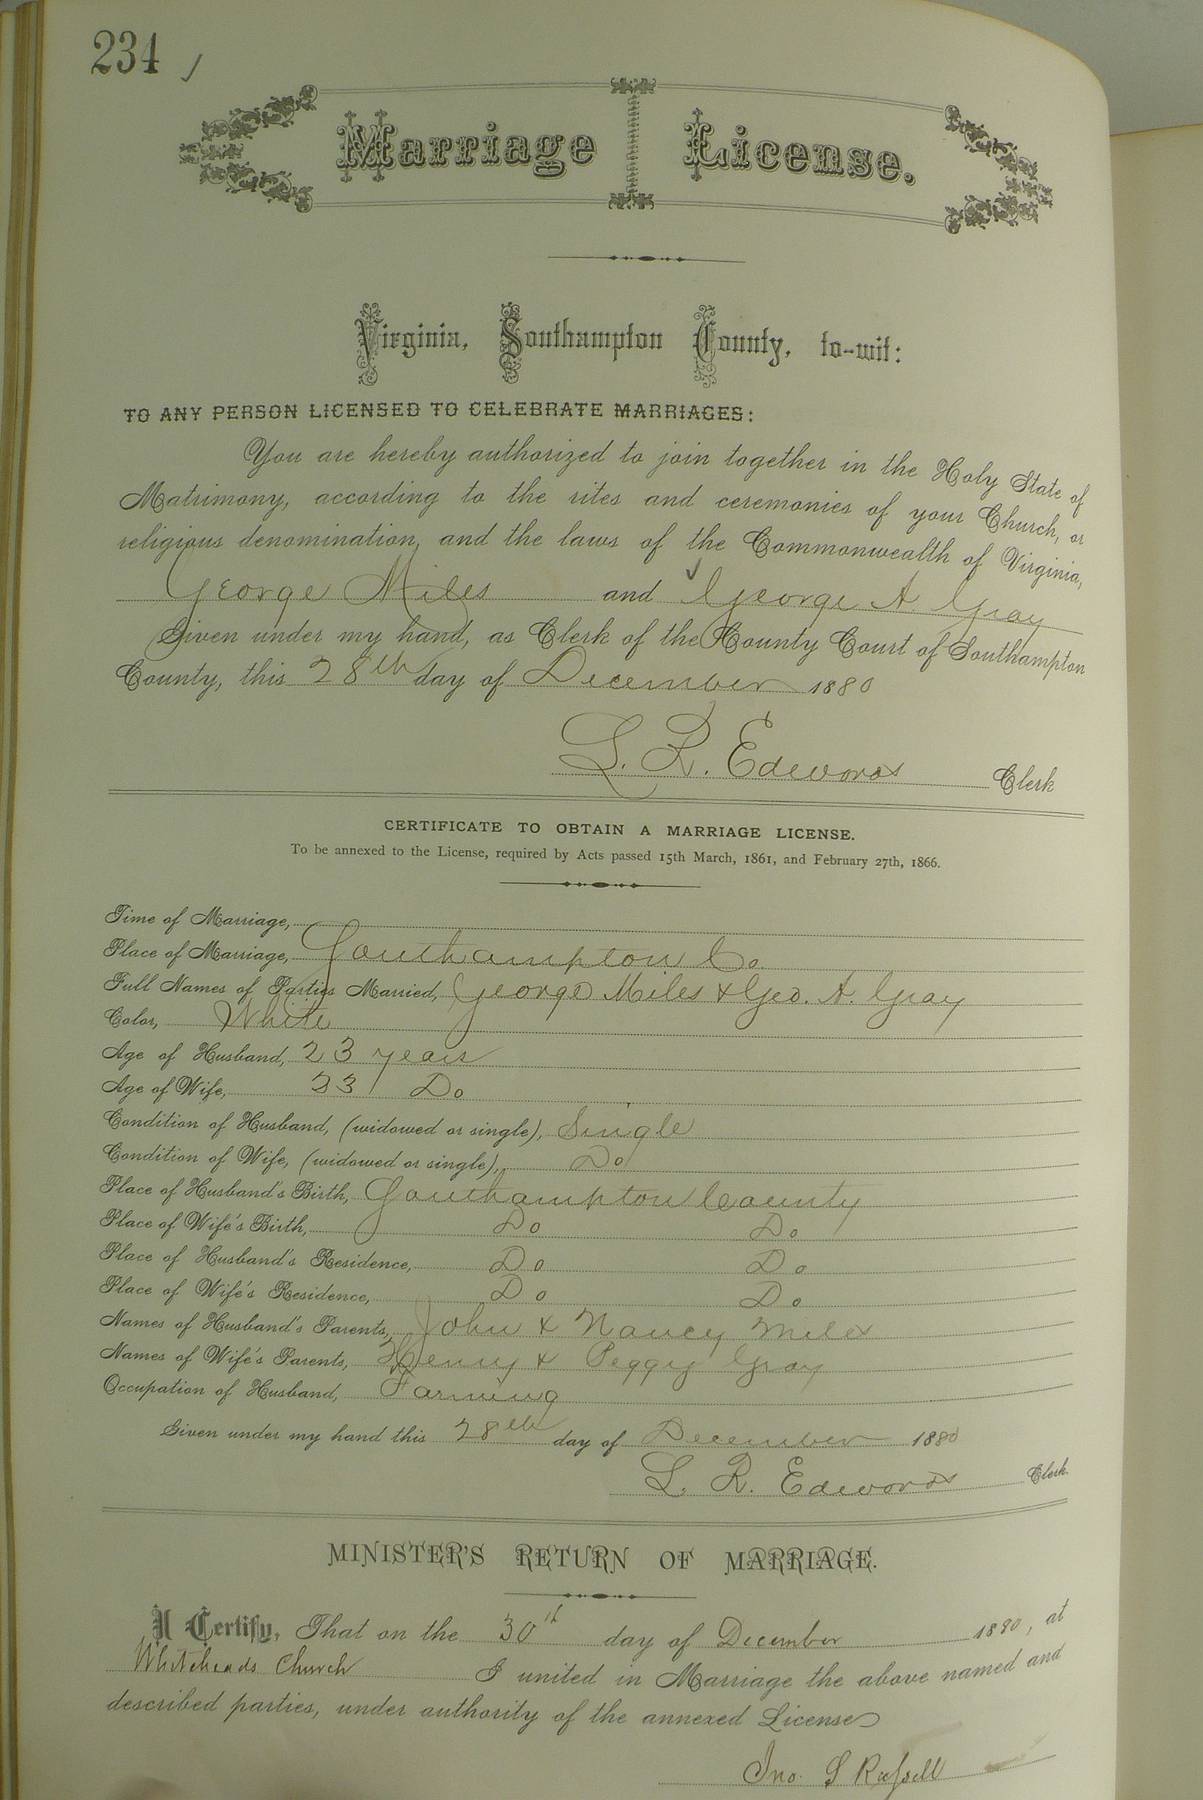 234
Marriage License.
Virginia, Southampton County, to-wit:
TO ANY PERSON LICENSED TO CELEBRATE MARRIAGES:
You are hereby authorized to join together in the Holy State of
Matrimony, according to the rites and ceremonies of your Church, or
religious denomination, and the laws of the Commonwealth of Virginia,
George Miles and George A. Gray
Given under my hand, as Clerk of the County Court of Southampton
County, this 28th day of December 1880
L. R. Edwards Clerk
CERTIFICATE TO OBTAIN A MARRIAGE LICENSE.
To be annexed to the License, required by Acts passed 15th March, 1861, and February 27th, 1866.
Time of Marriage,
Place of Marriage, Southampton Co.
Full Names of Parties Married, George Miles & Geo. A. Gray
Color, White
Age of Husband, 23 years
Age of Wife, 23 Do
Condition of Husband, (widowed or single), Single
Condition of Wife, (widowed or single), Do
Place of Husband's Birth, Southampton County
Place of Wife's Birth, Do Do
Place of Husband's Residence, Do Do
Place of Wife's Residence, Do Do
Names of Husband's Parents, John & Nancy Miles
Names of Wife's Parents, Henry & Peggy Gray
Occupation of Husband, Farming
Given under my hand this 28th day of December 1880
L. R. Edwards Clerk.
MINISTER'S RETURN OF MARRIAGE.
I Certify, That on the 30th day of December 1880, at
Whiteheads Church I united in Marriage the above named and
described parties, under authority of the annexed License
Jno. S Russell